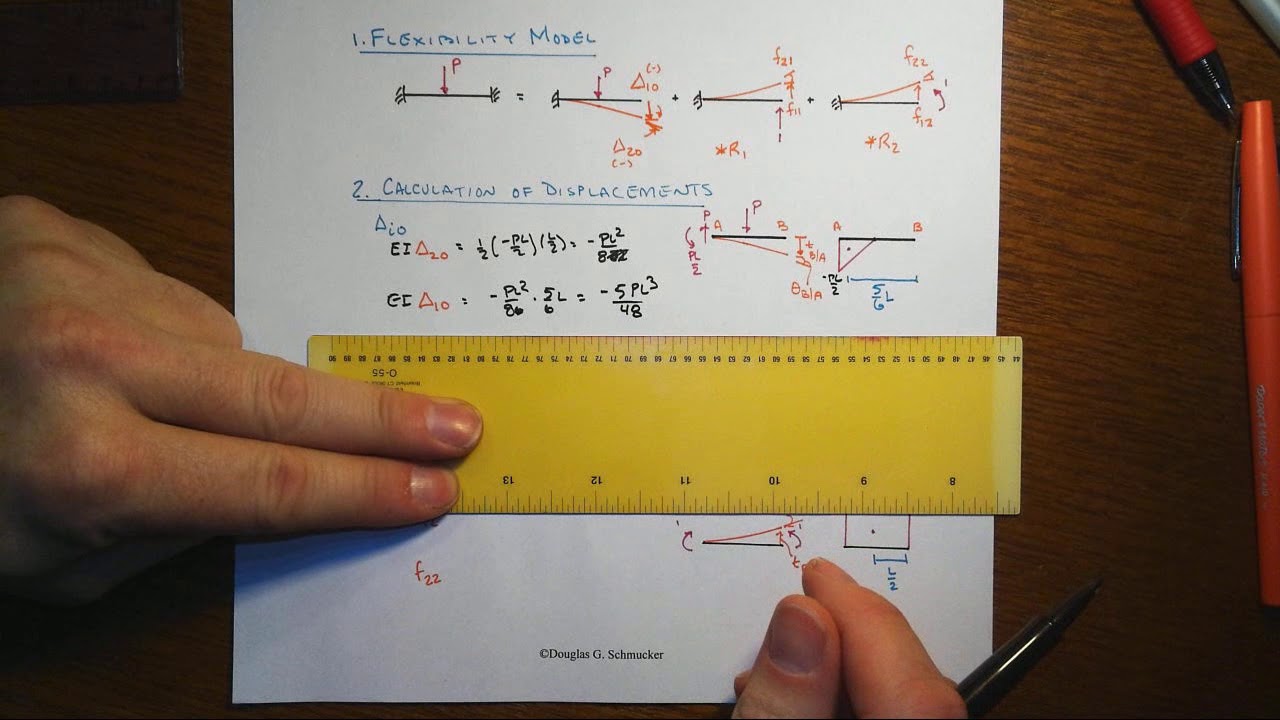 1. FLEXIBILITY MODEL
P = P Δ10 (-) Δ20 (-) + f21 f11 1 *R1 + f22 f12 1 *R2
2. CALCULATION OF DISPLACEMENTS
Δi0
EI Δ20 = 1/2 (-PL/2)(L/2) = -PL²/8
P A P B PL/2 t B/A θB/A
A B -PL/2 5/6 L
EI Δ10 = -PL²/8 · 5L/6 = -5PL³/48
90 89 88 87 86 85 84 83 82 81 80 79 78 77 76 75 74 73 72 71 70 69 68 67 66 65 64 63 62 61 60 59 58 57 56 55 54 53 52 51 50 49 48 47 46 45 44
O-55
13 12 11 10 9 8
1 1
L/2
f22
©Douglas G. Schmucker